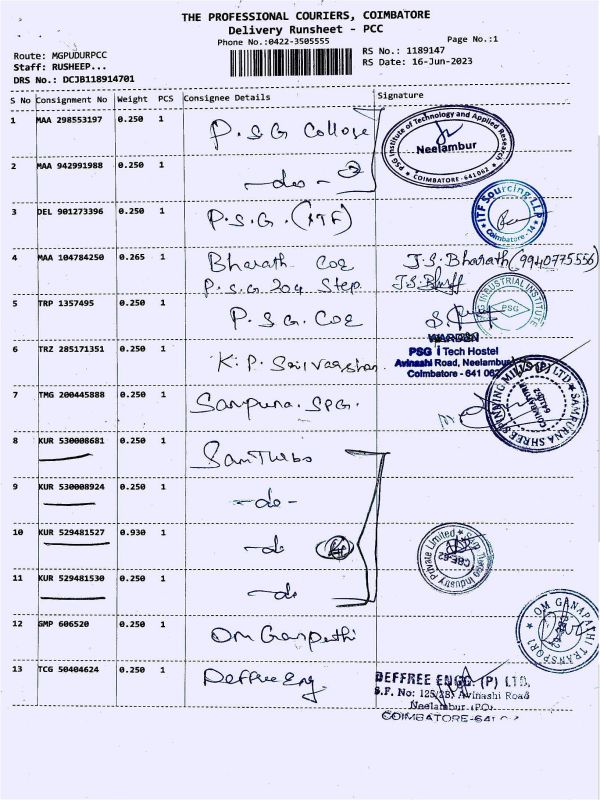 THE PROFESSIONAL COURIERS, COIMBATORE
Delivery Runsheet - PCC
Phone No.:0422-3505555
Page No.:1
Route: MGPUDURPCC
Staff: RUSHEEP...
DRS No.: DCJB118914701
RS No.: 1189147
RS Date: 16-Jun-2023
S No Consignment No Weight PCS Consignee Details Signature
1 MAA 298553197 0.250 1 P.S.G College
PSG Institute of Technology and Applied Research
Neelambur
COIMBATORE - 641 062
2 MAA 942991988 0.250 1 -do- 2
3 DEL 901273396 0.250 1 P.S.G. (ITF)
ITF Sourcing LLP
Coimbatore - 14
4 MAA 104784250 0.265 1 Bharath COE J.S. Bharath (9940775556)
P.S.G. 204 Step
5 TRP 1357495 0.250 1 P.S.G. COE
INDUSTRIAL INSTITUTE
PSG
WARDEN
6 TRZ 285171351 0.250 1 K.P. Saivarshan
PSG i Tech Hostel
Avinashi Road, Neelambur
Coimbatore - 641 062
7 TMG 200445888 0.250 1 Sampurna. SPG.
SAMPURNA SHREE SPINNING MILLS (P) LTD
COIMBATORE
641062
8 KUR 530008681 0.250 1 Sam Turbo
9 KUR 530008924 0.250 1 -do-
10 KUR 529481527 0.930 1 -do 4
Sam Turbo Industry Private Limited
CBE-62
11 KUR 529481530 0.250 1 -do
12 GMP 606520 0.250 1 Om Ganpathi
OM GANAPATHI TRANSPORT
13 TCG 50404624 0.250 1 Deffree Eng
DEFFREE ENGG. (P) LTD,
S.F. No: 125/2B, Avinashi Road
Neelambur (PO)
COIMBATORE-641